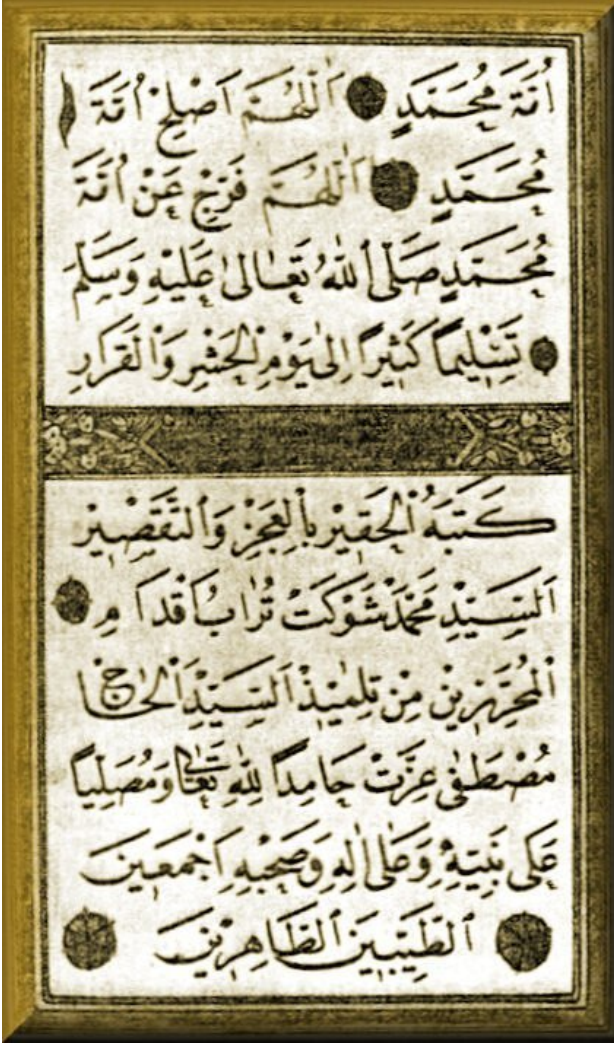 اُمَّةَ مُحَمَّدٍ اَللّٰهُمَّ اَصْلِحْ اُمَّةَ
مُحَمَّدٍ اَللّٰهُمَّ فَرِّجْ عَنْ اُمَّةَ
مُحَمَّدٍ صَلَّى اللّٰهُ تَعَالٰى عَلَيْهِ وَسَلَّمَ
تَسْلِيماً كَثِيراً اِلٰى يَوْمِ الْحَشْرِ وَالْقَرَارِ
كَتَبَهُ الْحَقِيْرُ بِالْعَجْزِ وَالتَّقْصِيْرِ
اَلسَّيِّدْ مُحَمَّدْ شَوْكَتْ تُرَابُ اَقْدَامِ
الْمُحَرِّرِيْنَ مِنْ تِلْمِيْذِ اَلسَّيِّدِ اَلْحَاجّ
مُصْطَفٰى عِزَّتْ حَامِداً لِلّٰهِ تَعَالٰى وَمُصَلِّياً
عَلٰى نَبِيِّهِ وَعَلٰى اٰلِهِ وَصَحْبِهِ اَجْمَعِيْنَ
اَلطَّيِّبِيْنَ الطَّاهِرِيْنَ